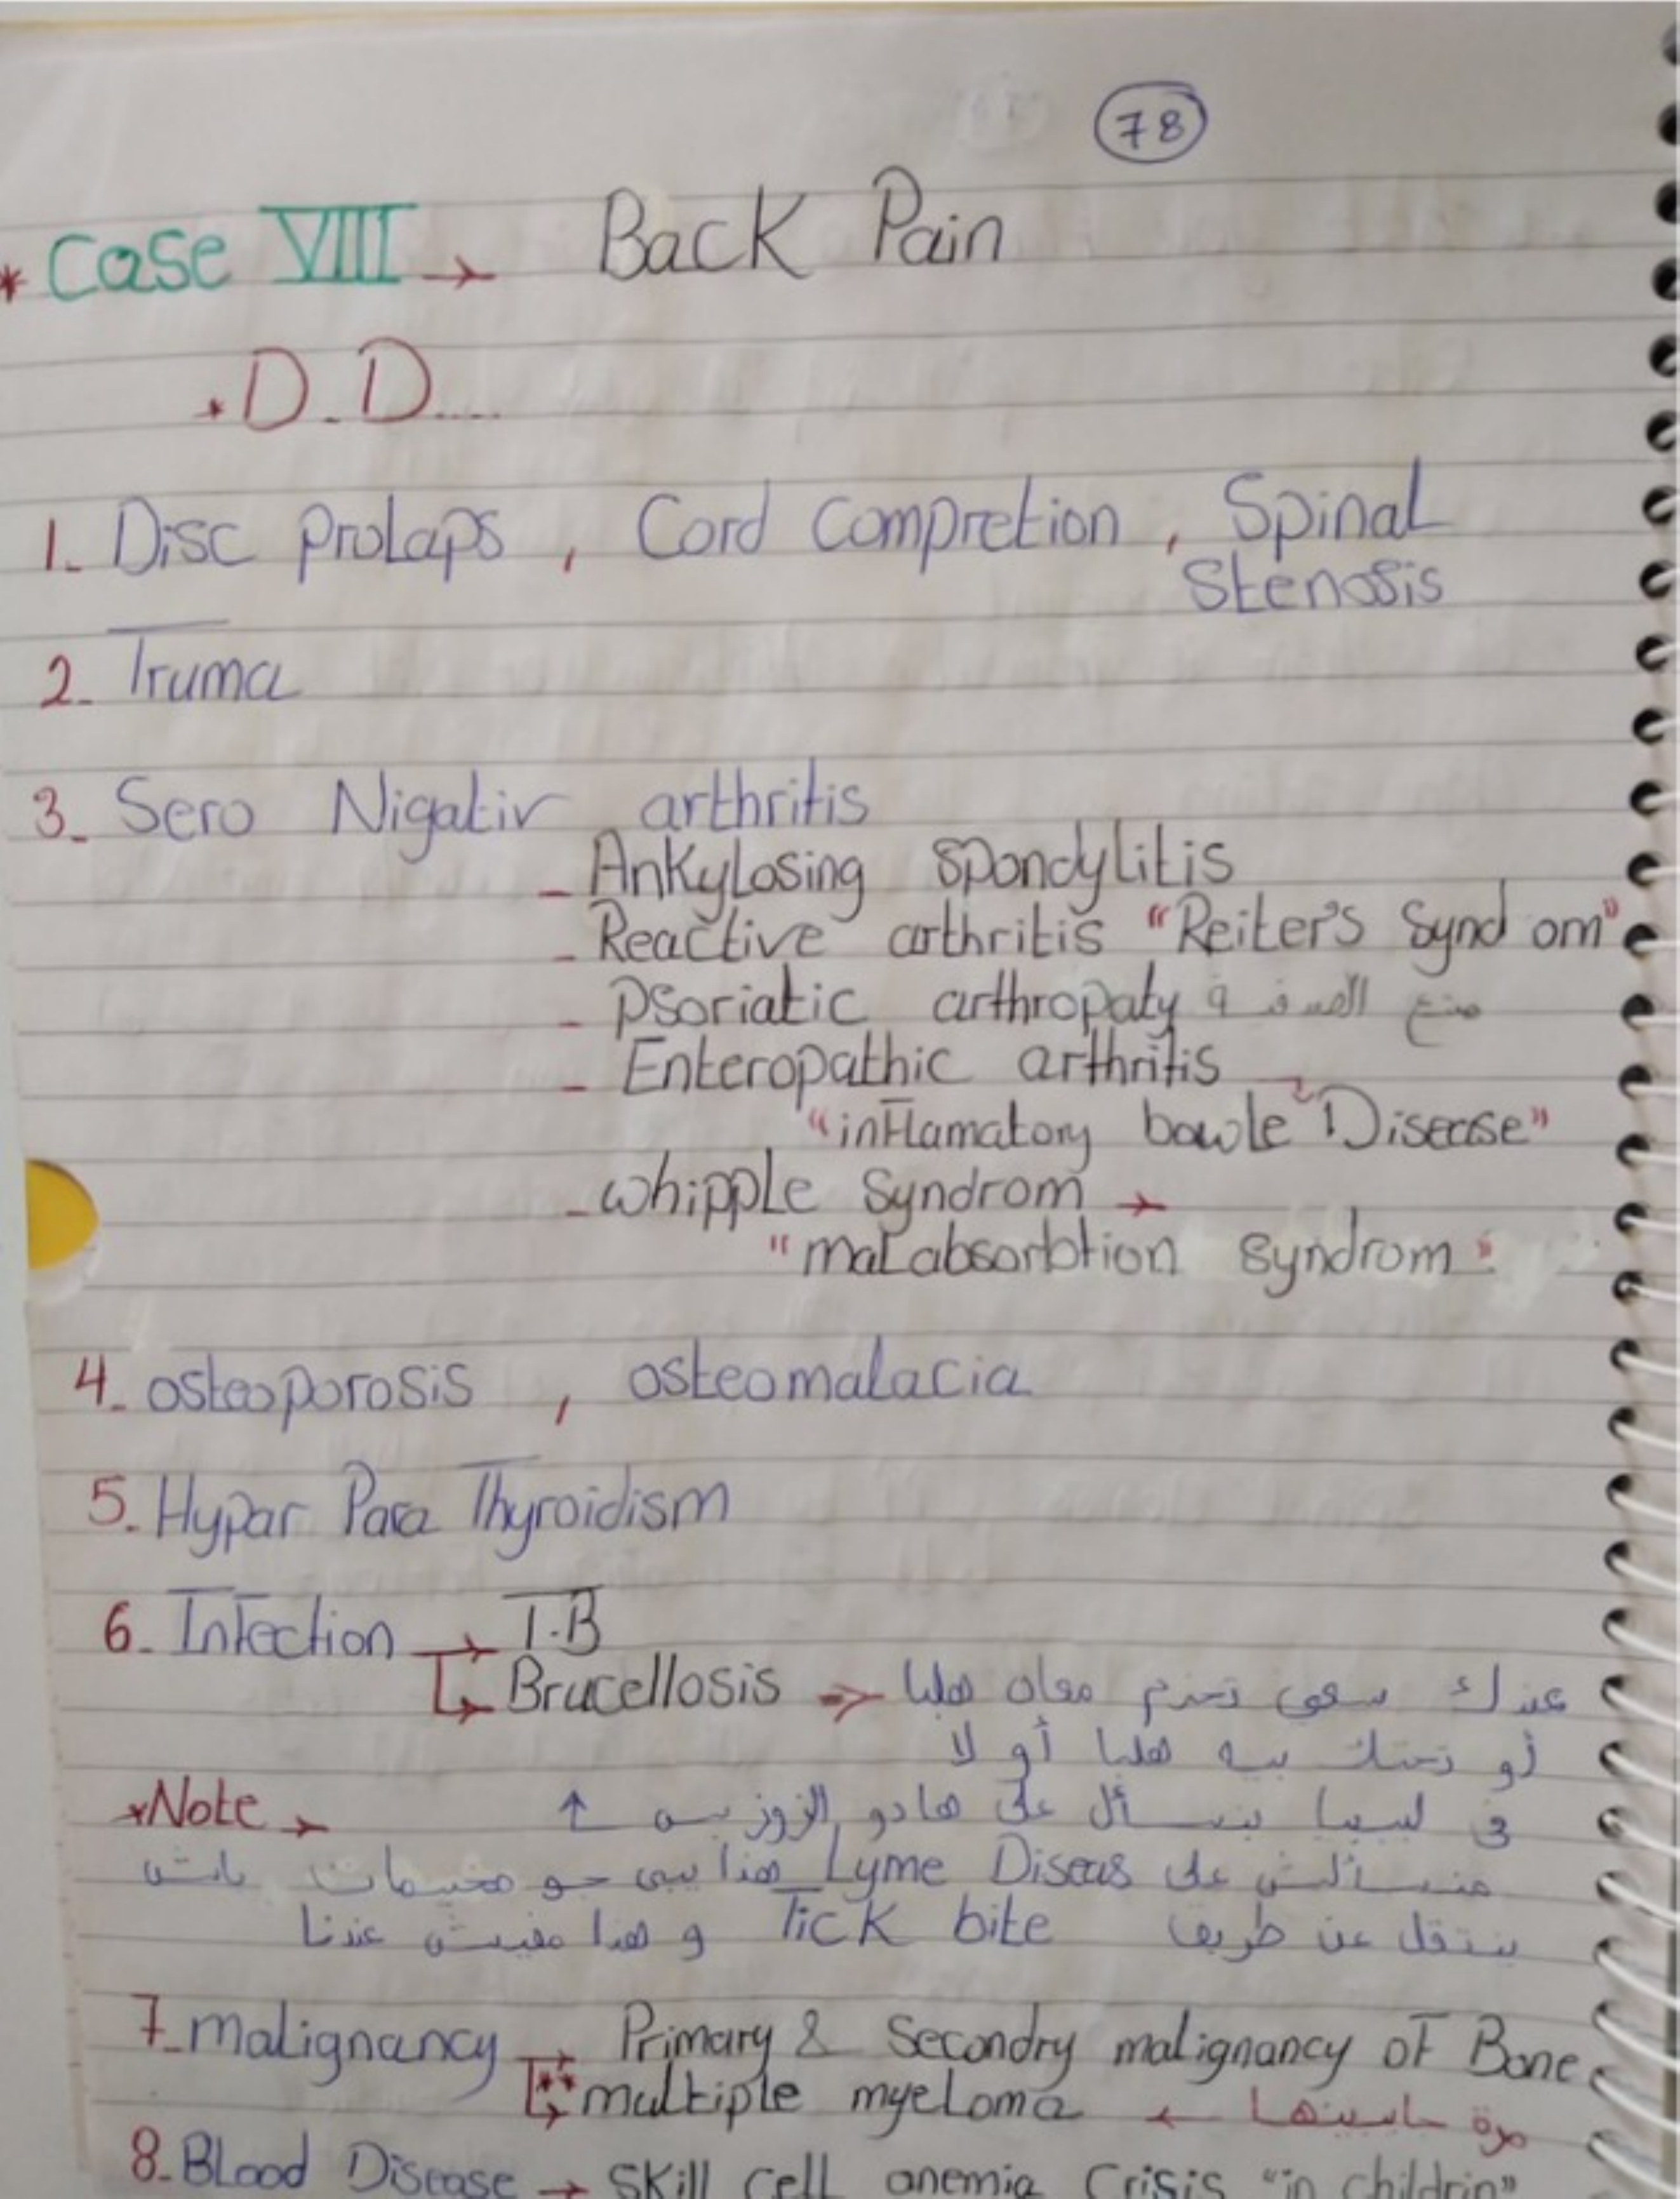 78
* Case VIII → Back Pain
* D.D....
1. Disc prolaps , Cord Compretion , Spinal
Stenosis
2. Truma
3. Sero Nigativ arthritis
- Ankylosing spondylitis
- Reactive arthritis "Reiter's Synd om"
- Psoriatic arthropaty
- Enteropathic arthritis →
"inflamatory bowle Disease"
- whipple Syndrom →
"malabsorbtion syndrom"
4. osteoporosis , osteomalacia
5. Hypar Para Thyroidism
6. Infection → T.B
↳ Brucellosis ⇒ عندك سعي تخدم معاه هلبا
أو تحتك بيه هلبا أو لا
*Note → في ليبيا ينسأل على هادو الزوز بس ↑
منسألش على Lyme Diseas هذا يبي جو مخيمات
ينتقل عن طريق Tick bite و هذا مفيش عندنا
7. malignancy → Primary & Secondry malignancy of Bone
↳ ** multiple myeloma ← مرة جايبينها
8. Blood Disease → Skill Cell anemia Crisis "in childrin"